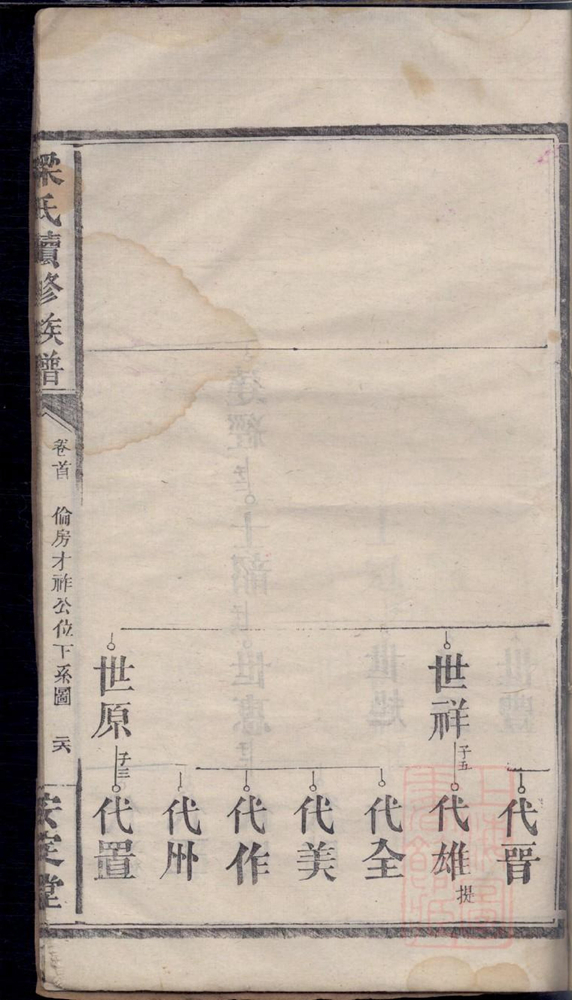 代晋
世祥
子五
代雄
提
代全
代美
代作
代州
世原
子三
代置
梁氏續修族譜
卷首 倫房才祚公位下系圖 六
安定堂